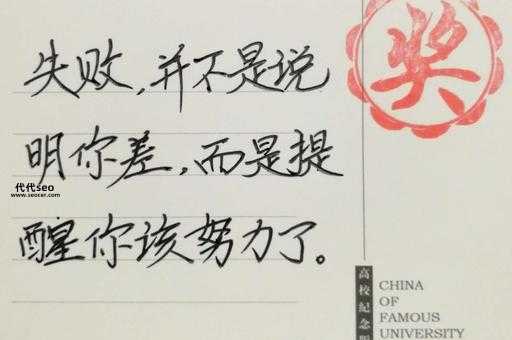 失败,并不是说
明你差,而是提
醒你该努力了。
代代seo
www.seocer.com
奖
高校紀念
CHINA
OF
FAMOUS
UNIVERSITY